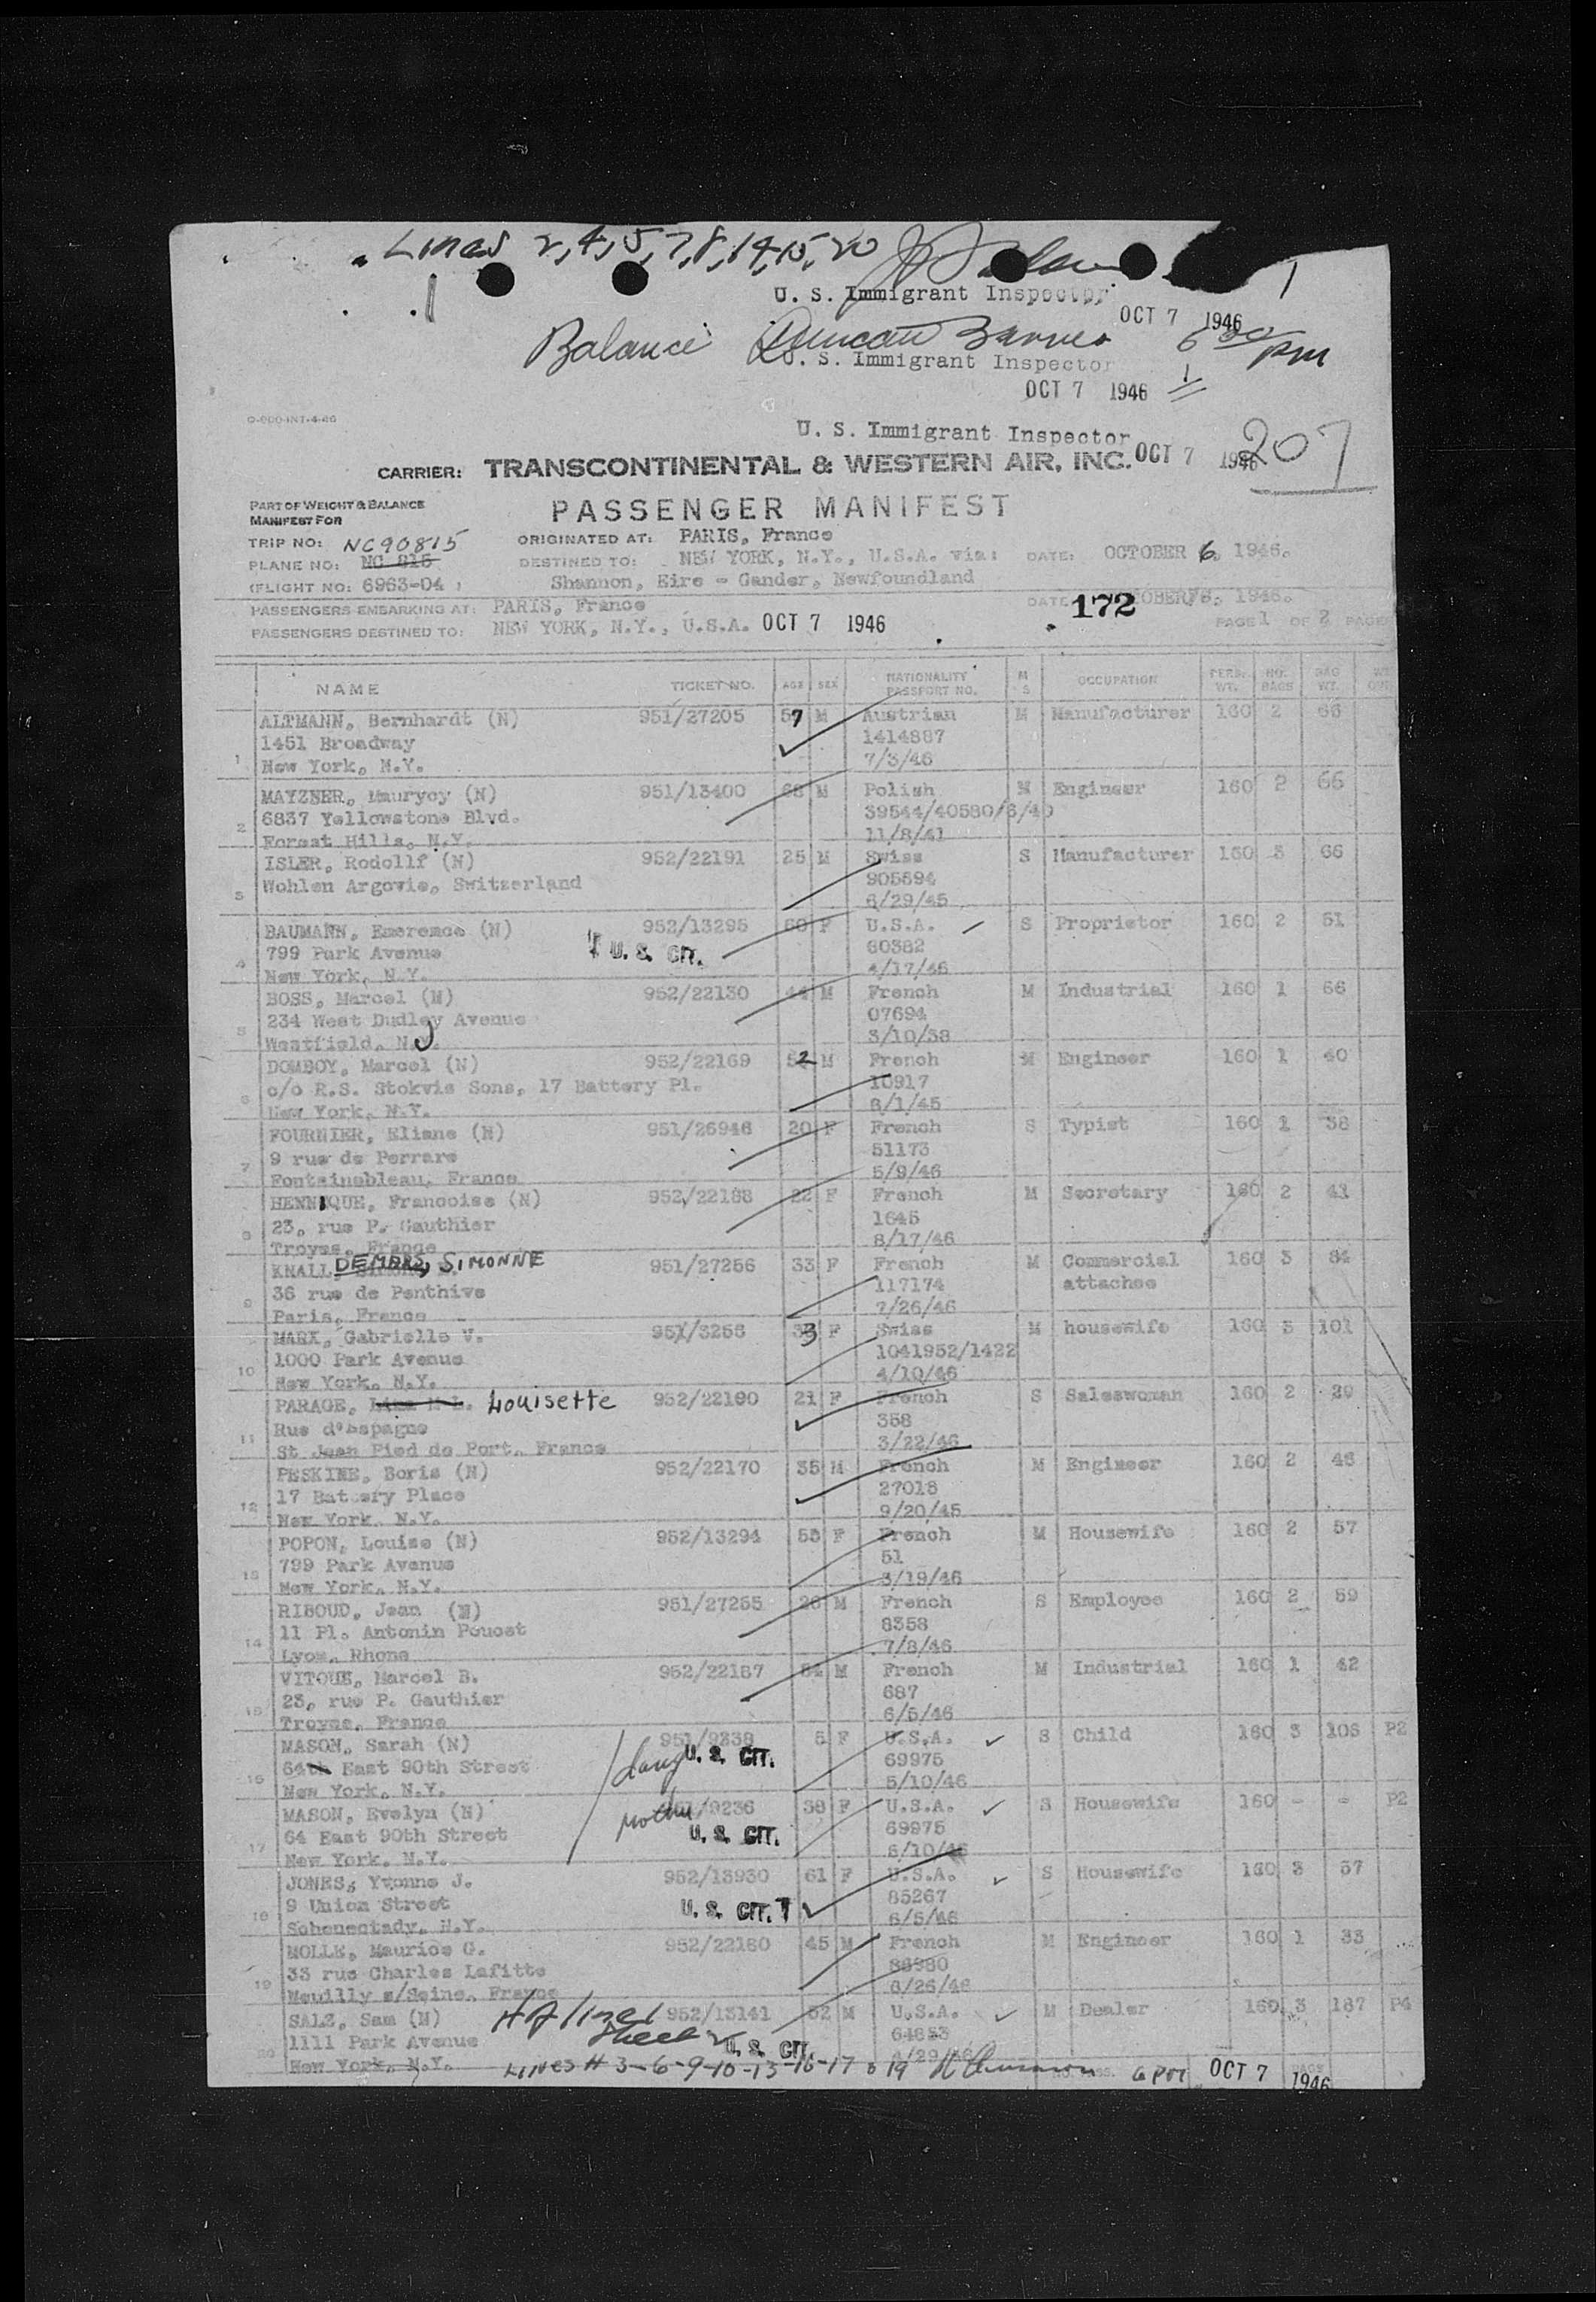 Lines 2, 4, 5, 7, 8, 14, 15, 20
U. S. Immigrant Inspector
OCT 7 1946
Balance Duncan
6 30 pm
U. S. Immigrant Inspector
OCT 7 1946
O-000-INT-4-46
U. S. Immigrant Inspector
OCT 7 1946
207
CARRIER: TRANSCONTINENTAL & WESTERN AIR, INC.
PART OF WEIGHT & BALANCE
MANIFEST FOR
PASSENGER MANIFEST
TRIP NO: NC90815
ORIGINATED AT: PARIS, France
PLANE NO: NC 815
DESTINED TO: NEW YORK, N.Y., U.S.A. via: DATE: OCTOBER 6, 1946.
(FLIGHT NO: 6963-04)
Shannon, Eire - Gander, Newfoundland
PASSENGERS EMBARKING AT: PARIS, France
DATE 172 1946.
PASSENGERS DESTINED TO: NEW YORK, N.Y., U.S.A. OCT 7 1946
PAGE 1 OF 2 PAGE
NAME TICKET NO. AGE SEX NATIONALITY PASSPORT NO. M S OCCUPATION PERS. WT. NO. BAGS BAG WT.
ALTMANN, Bernhardt (N) 951/27205 57 M Austrian M Manufacturer 160 2 66
1451 Broadway 1414887
1 New York, N.Y. 7/3/46
MAYZNER, Maurycy (N) 951/13400 M Polish M Engineer 160 2 66
6837 Yellowstone Blvd. 39544/40580/6/40
2 Forest Hills, N.Y. 11/8/41
ISLER, Rodollf (N) 952/22191 25 M Swiss S Manufacturer 160 3 66
Wohlen Argovie, Switzerland 905694
3 6/29/45
BAUMANN, Emerence (N) 952/13295 60 F U.S.A. S Proprietor 160 2 51
799 Park Avenue U. S. CIT. 60382
4 New York, N.Y. 4/17/46
BOSS, Marcel (N) 952/22130 44 M French M Industrial 160 1 66
234 West Dudley Avenue 07694
5 Westfield, N.J. 3/10/38
DOMBOY, Marcel (N) 952/22169 52 M French M Engineer 160 1 40
c/o R.S. Stokvis Sons, 17 Battery Pl. 10917
6 New York, N.Y. 8/1/45
FOURNIER, Eliane (N) 951/26946 20 F French S Typist 160 1 38
9 rue de Ferrare 51173
7 Fontainebleau, France 5/9/46
HENNIQUE, Francoise (N) 952/22188 22 F French M Secretary 160 2 41
23, rue P. Gauthier 1645
8 Troyes, France 8/17/46
KNALL, SIMONNE 951/27256 33 F French M Commercial 160 3 84
36 rue de Penthive 117174 attachee
9 Paris, France 7/26/46
MARX, Gabrielle V. 951/3256 33 F Swiss M housewife 160 3 101
1000 Park Avenue 1041952/1422
10 New York, N.Y. 4/10/46
PARAGE, Louisette 952/22190 21 F French S Saleswoman 160 2 29
Rue d'Espagne 358
11 St Jean Pied de Port, France 3/22/46
PESKINE, Boris (N) 952/22170 35 M French M Engineer 160 2 46
17 Battery Place 27018
12 New York, N.Y. 9/20/45
POPON, Louise (N) 952/13294 53 F French M Housewife 160 2 57
799 Park Avenue 51
13 New York, N.Y. 3/19/46
RIBOUD, Jean (N) 951/27255 26 M French S Employee 160 2 59
11 Pl. Antonin Poucet 8358
14 Lyon, Rhone 7/8/46
VITOUX, Marcel B. 952/22187 M French M Industrial 160 1 42
23, rue P. Gauthier 687
15 Troyes, France 6/5/46
MASON, Sarah (N) 951/9238 5 F U.S.A. S Child 160 3 106 P2
64th East 90th Street daug U. S. CIT. 69975
16 New York, N.Y. 5/10/46
MASON, Evelyn (N) 951/9236 38 F U.S.A. S Housewife 160 - - P2
64 East 90th Street mother U. S. CIT. 69975
17 New York, N.Y. 5/10/46
JONES, Yvonne J. 952/13930 61 F U.S.A. S Housewife 160 3 57
9 Union Street U. S. CIT. 85267
18 Schenectady, N.Y. 6/5/46
MOLLE, Maurice G. 952/22180 45 M French M Engineer 160 1 33
33 rue Charles Lafitte 86980
19 Neuilly s/Seine, France 6/26/46
SALZ, Sam (N) 952/13141 52 M U.S.A. M Dealer 160 3 187 P4
1111 Park Avenue U. S. CIT. 64853
20 New York, N.Y. 4/29/46
Lines # 3-6-9-10-13-16-17 & 19 6 PM OCT 7 1946